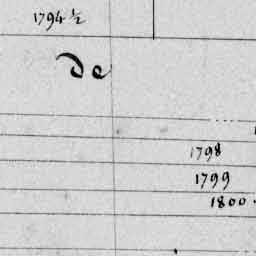 1794 ½
de
1798
1799
1800